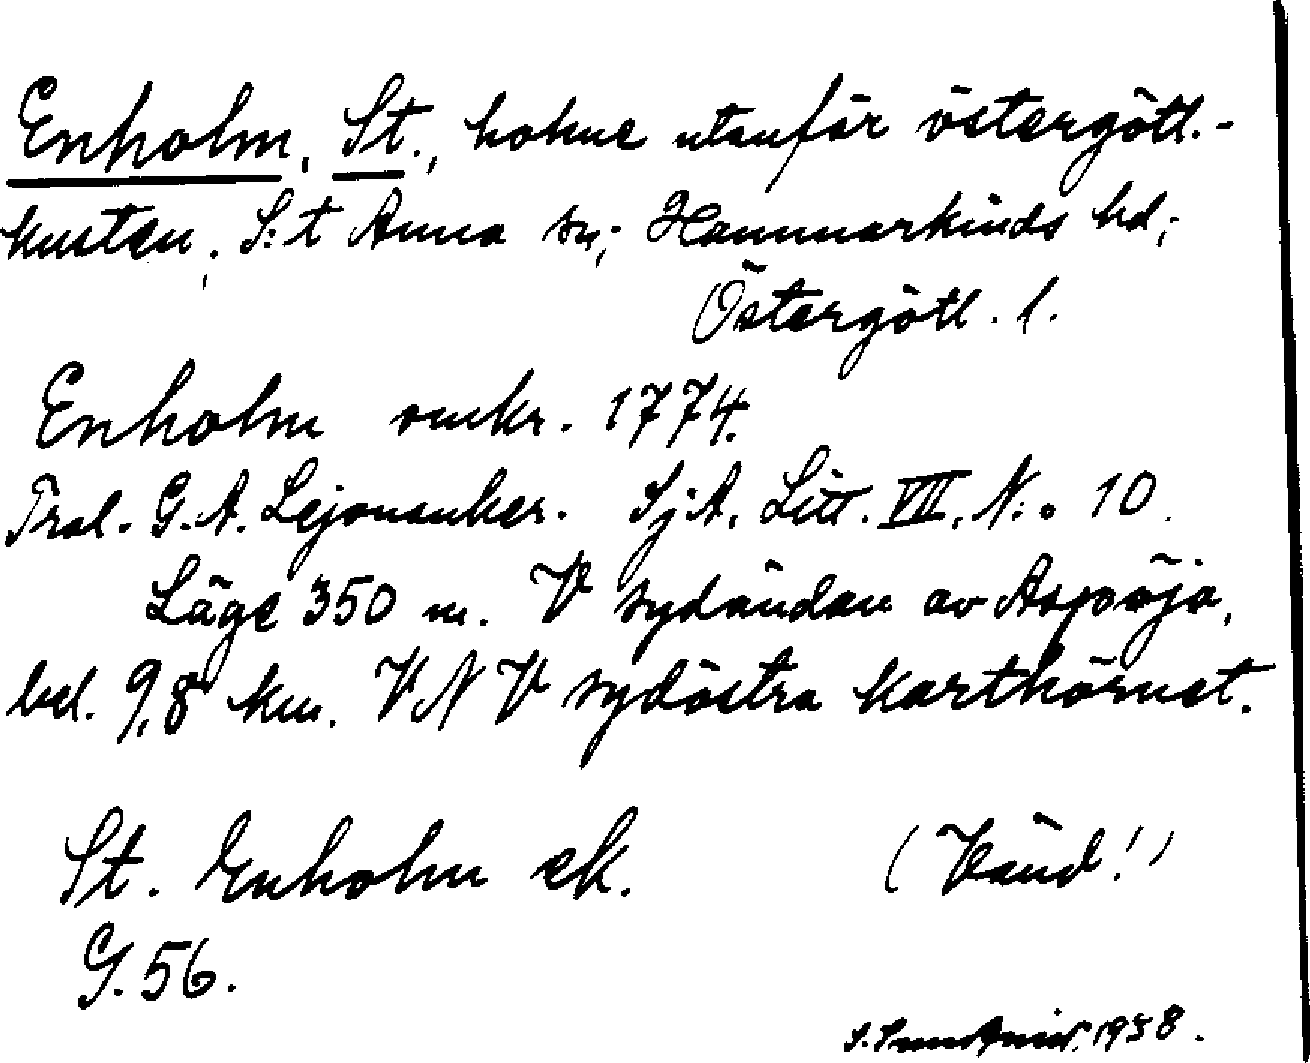 Enholm, St., holme utanför östergötl.-
kusten, S:t Anna sn; Hammarkinds hd;
Östergötl. l.
Enholm omkr. 1774.
Tral. G. A. Lejonanker. SjA. Litt. VII. N:o 10.
Läge 350 m. V sydändan av Aspöja,
bel. 9,8 km. VNV sydöstra karthörnet.
St. Enholm ek.
(Vänd!)
G. 56.
1958.